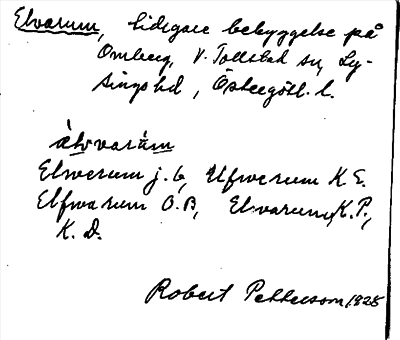 Elvarum, tidigare bebyggelse på
Omberg, V. Tollstad sn, Ly-
sings hd, Östergötl. l.
älvvaräm
Elwerum j. b, Elfwerum K. E.
Elfwarum O. B, Elvarum, K. P.,
K. D.
Robert Pettersson 1928